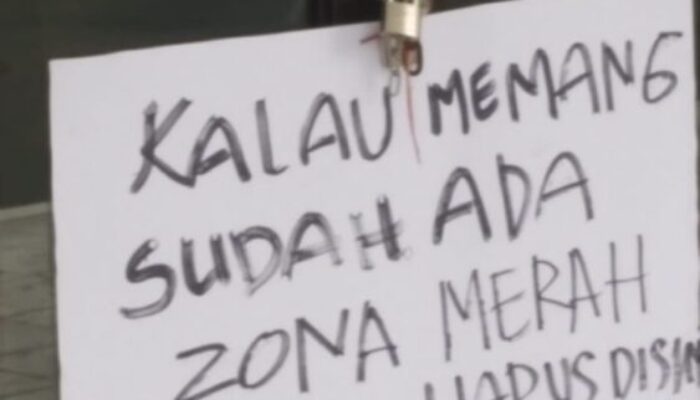 KALAU MEMANG
SUDAH ADA
ZONA MERAH
HARUS